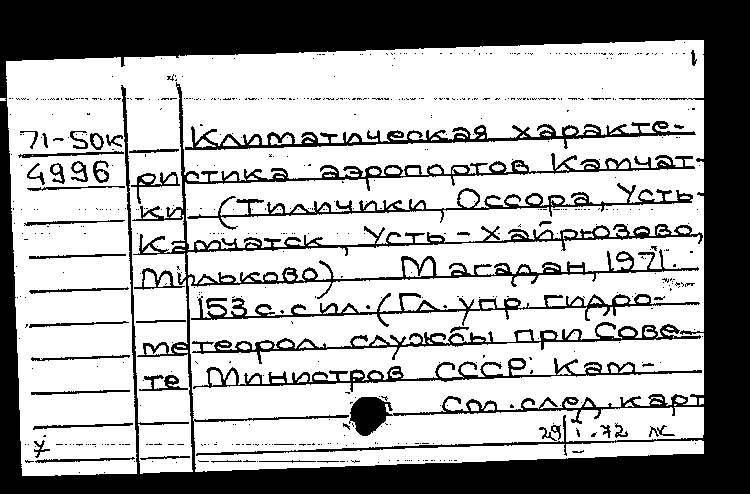 71-50к Климатическая характе-
4996 ристика аэропортов Камчат-
ки (Тиличики, Оссора, Усть-
Камчатск, Усть-Хайрюзово,
Мильково). Магадан, 1971.
153 с. с ил. (Гл. упр. гидро-
метеорол. службы при Сове-
те Министров СССР. Кам-
см. след. карт
29 I.72